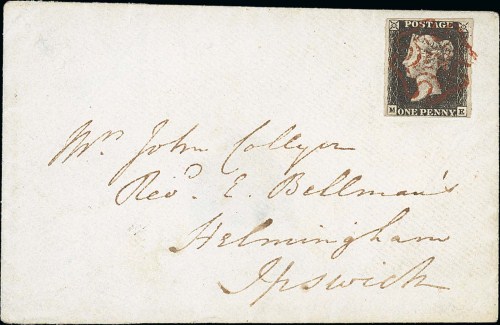 POSTAGE
M E
ONE PENNY
Mr. John Collyer
Revd. E. Bellman's
Helmingham
Ipswich